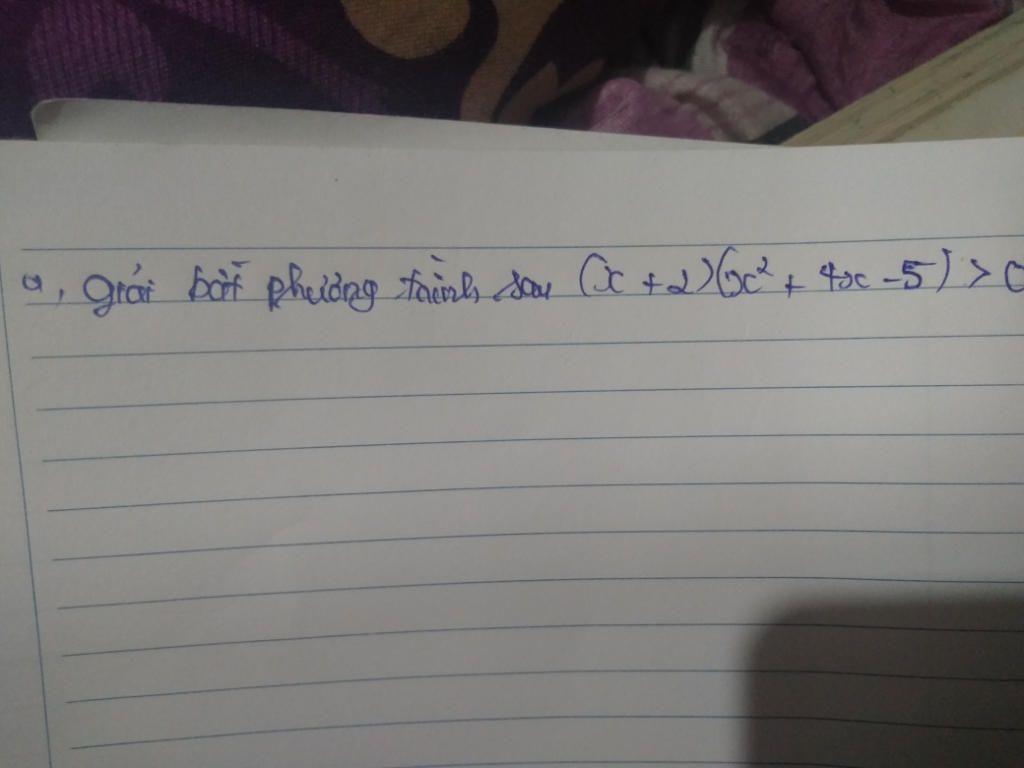 a, giải bất phương trình sau (x + 2)(x² + 4x - 5) > 0